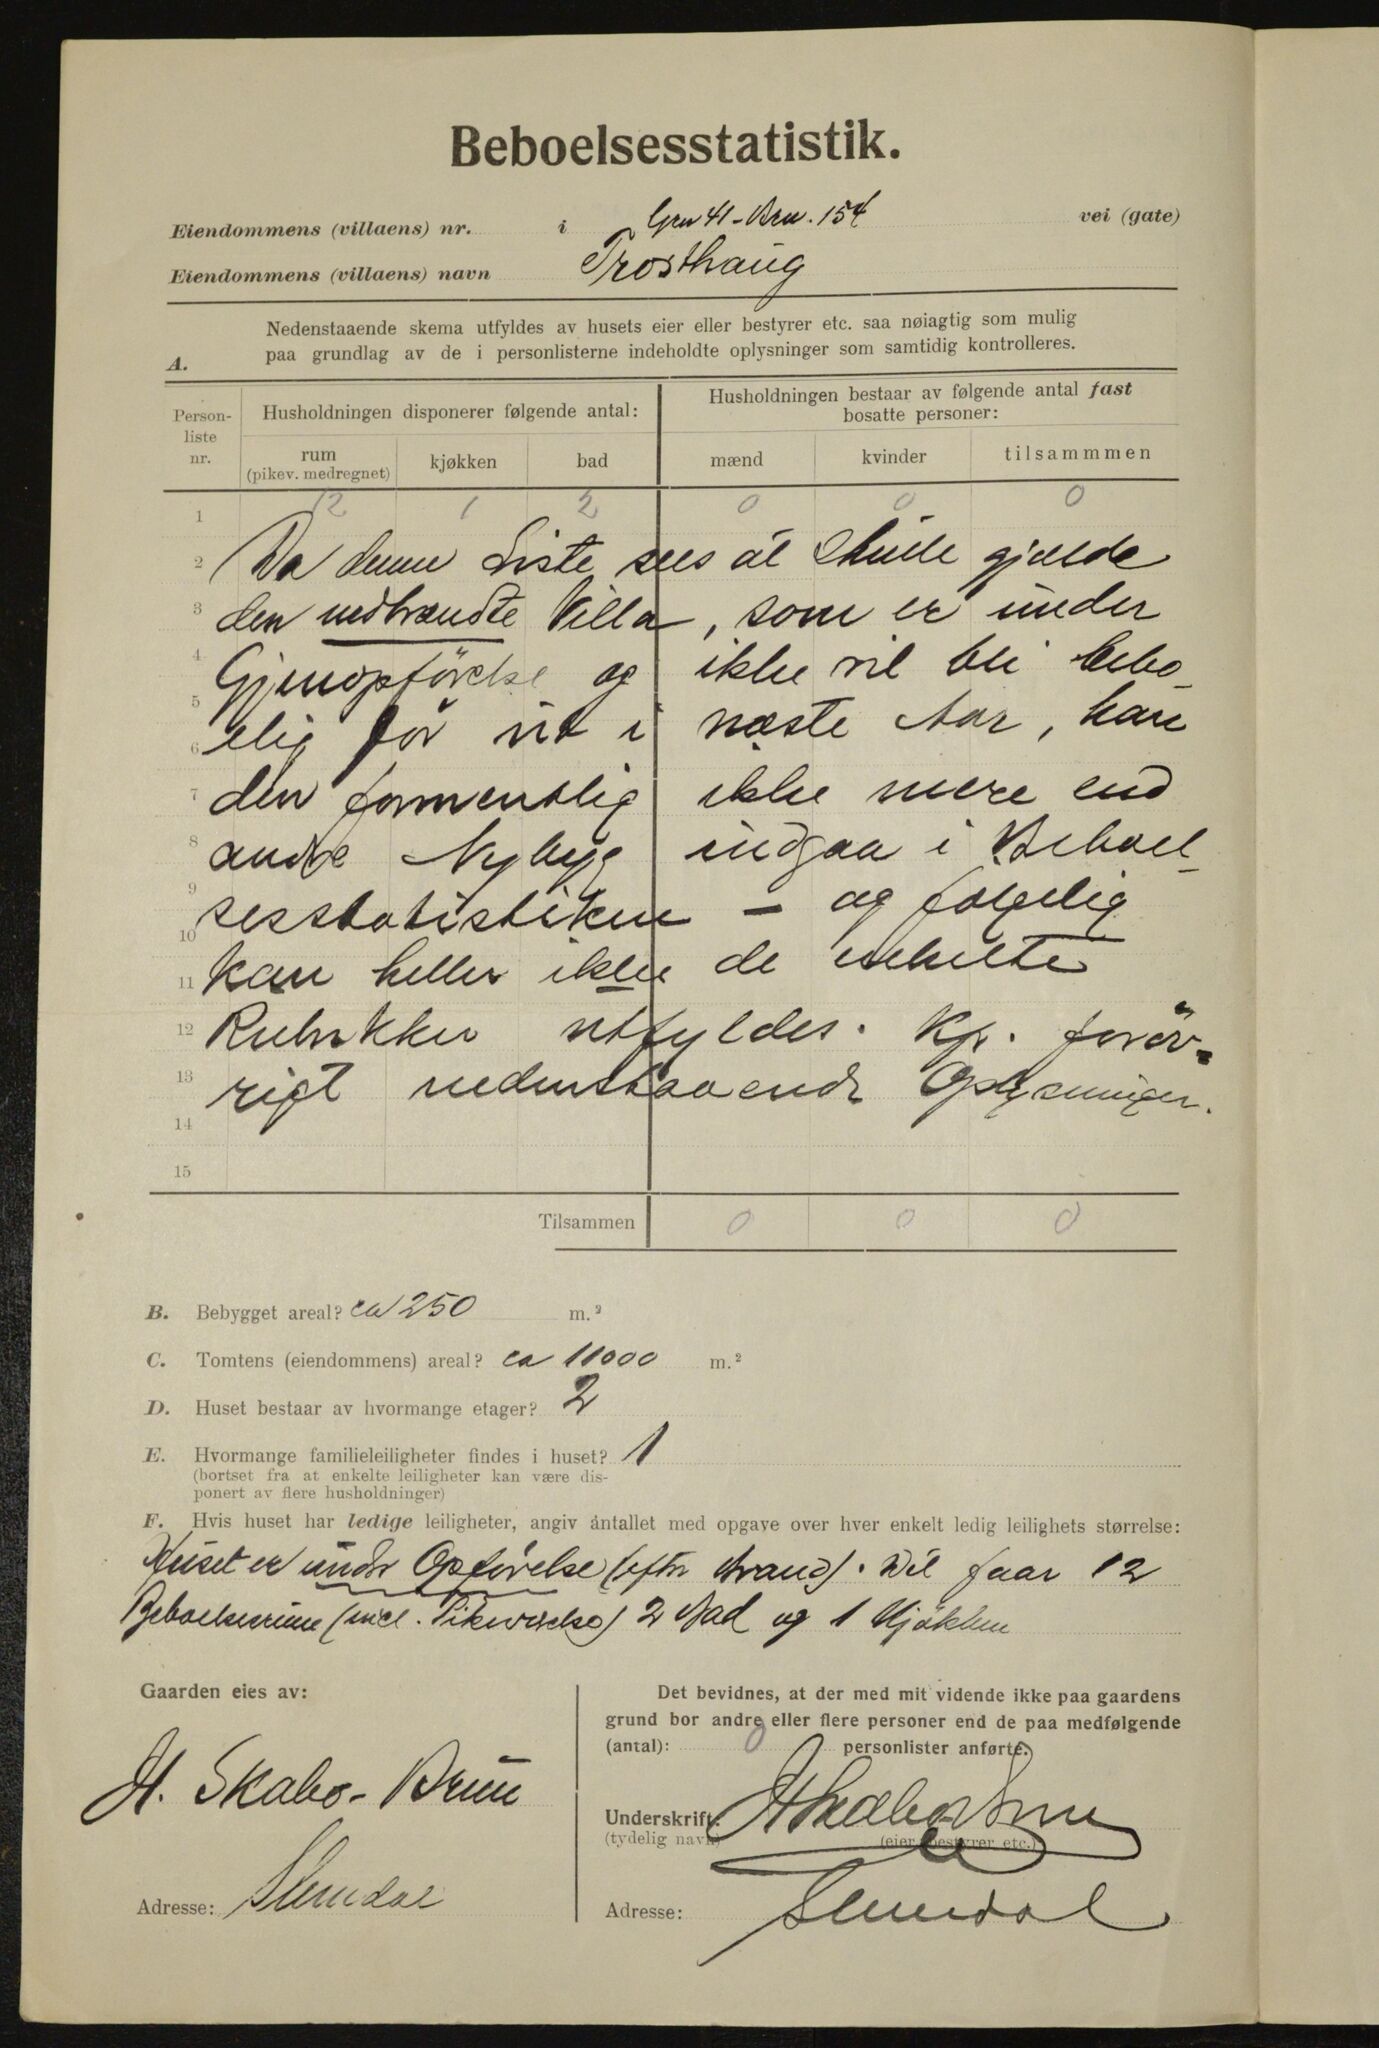 Beboelsesstatistik.
Eiendommens (villaens) nr. i Grn 41 - Brn. 154 vei (gate)
Eiendommens (villaens) navn Trosthaug
A. Nedenstaaende skema utfyldes av husets eier eller bestyrer etc. saa nøiagtig som mulig
paa grundlag av de i personlisterne indeholdte oplysninger som samtidig kontrolleres.
Person-
liste
nr.
Husholdningen disponerer følgende antal:
rum
(pikev. medregnet)
kjøkken
bad
Husholdningen bestaar av følgende antal fast
bosatte personer:
mænd
kvinder
tilsammmen
1 12 1 2 0 0 0
2 Da denne Liste sees at skulle gjælde
3 den nedbrændte Villa, som er under
4 Gjenopförelse og ikke vil bli bebo-
5
6 elig för ut i næste Aar, kan
7 den formentlig ikke mere end
8 andre Nybyg indgaa i Beboel-
9
10 sesstatistiken — og følgelig
11 kan heller ikke de enkelte
12 Rubrikker utfyldes. Kfr. foröv-
13 rigt nedenstaaende Oplysninger.
14
15
Tilsammen 0 0 0
B. Bebygget areal? ca 250 m.²
C. Tomtens (eiendommens) areal? ca 11000 m.²
D. Huset bestaar av hvormange etager? 2
E. Hvormange familieleiligheter findes i huset? 1
(bortset fra at enkelte leiligheter kan være dis-
ponert av flere husholdninger)
F. Hvis huset har ledige leiligheter, angiv antallet med opgave over hver enkelt ledig leilighets størrelse:
Huset er under Opförelse (efter Brand). Vil faar 12
Beboelsesrum (incl. Pikeværelse) 2 Bad og 1 Kjökken
Gaarden eies av:
H. Skabo-Brun
Adresse: Slemdal
Det bevidnes, at der med mit vidende ikke paa gaardens
grund bor andre eller flere personer end de paa medfølgende
(antal): 0 personlister anførte.
Underskrift: H Skabo Brun
(tydelig navn) (eier, bestyrer etc.)
Adresse: Slemdal